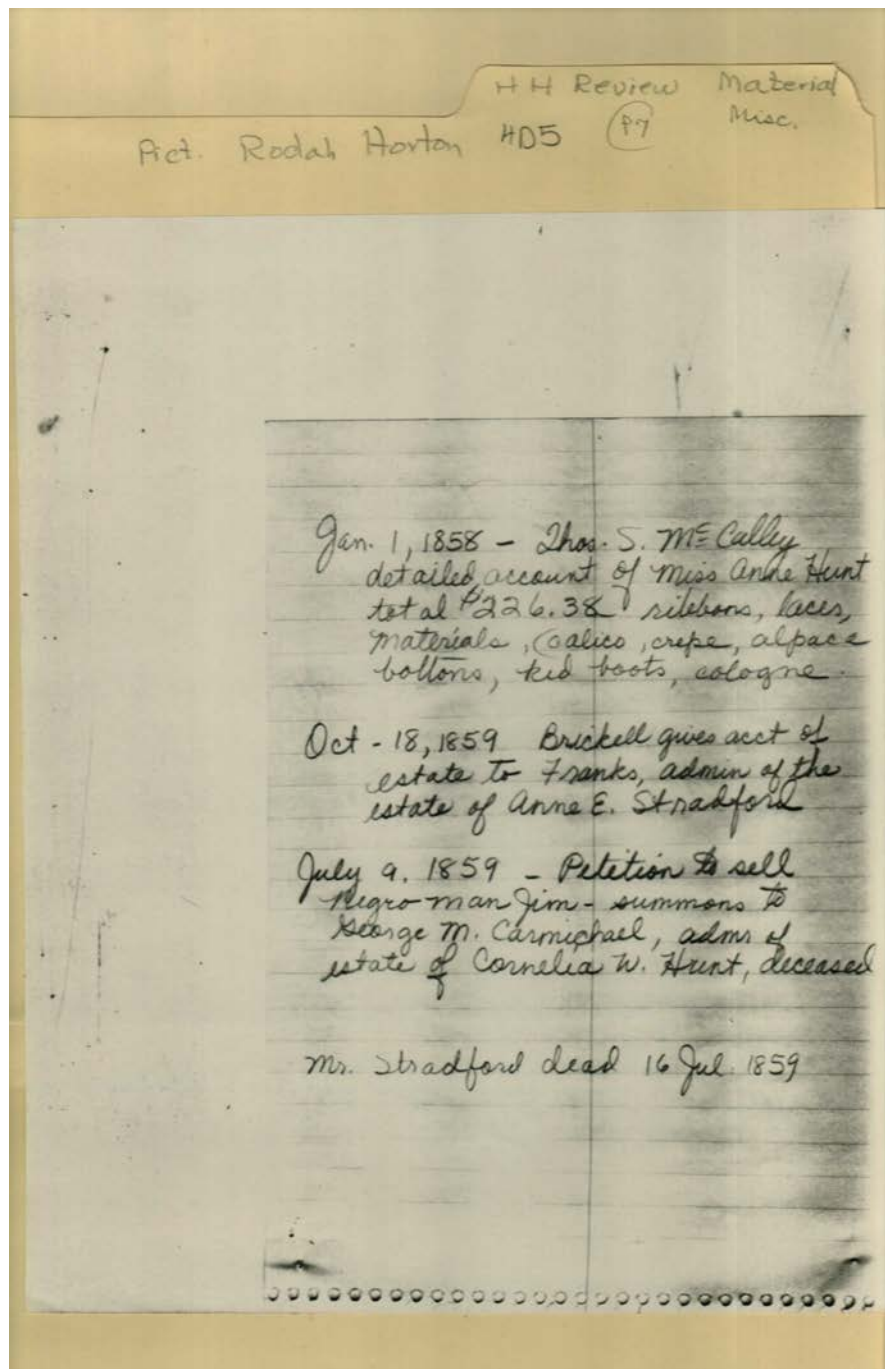 HH Review Material
Pict. Rodah Horton HD5 P7 Misc.
Jan. 1, 1858 - Thos. S. McCalley
detailed account of Miss Anne Hunt
total $226.38 ribbons, laces,
materials, Calico, crepe, alpaca
bottons, kid boots, cologne.
Oct - 18, 1859 Brickell gives acct of
estate to Franks, admin of the
estate of Anne E. Stradford
July 9. 1859 - Petition to sell
Negro man Jim - summons to
George M. Carmichael, admr of
estate of Cornelia W. Hunt, deceased
Mr. Stradford dead 16 Jul. 1859